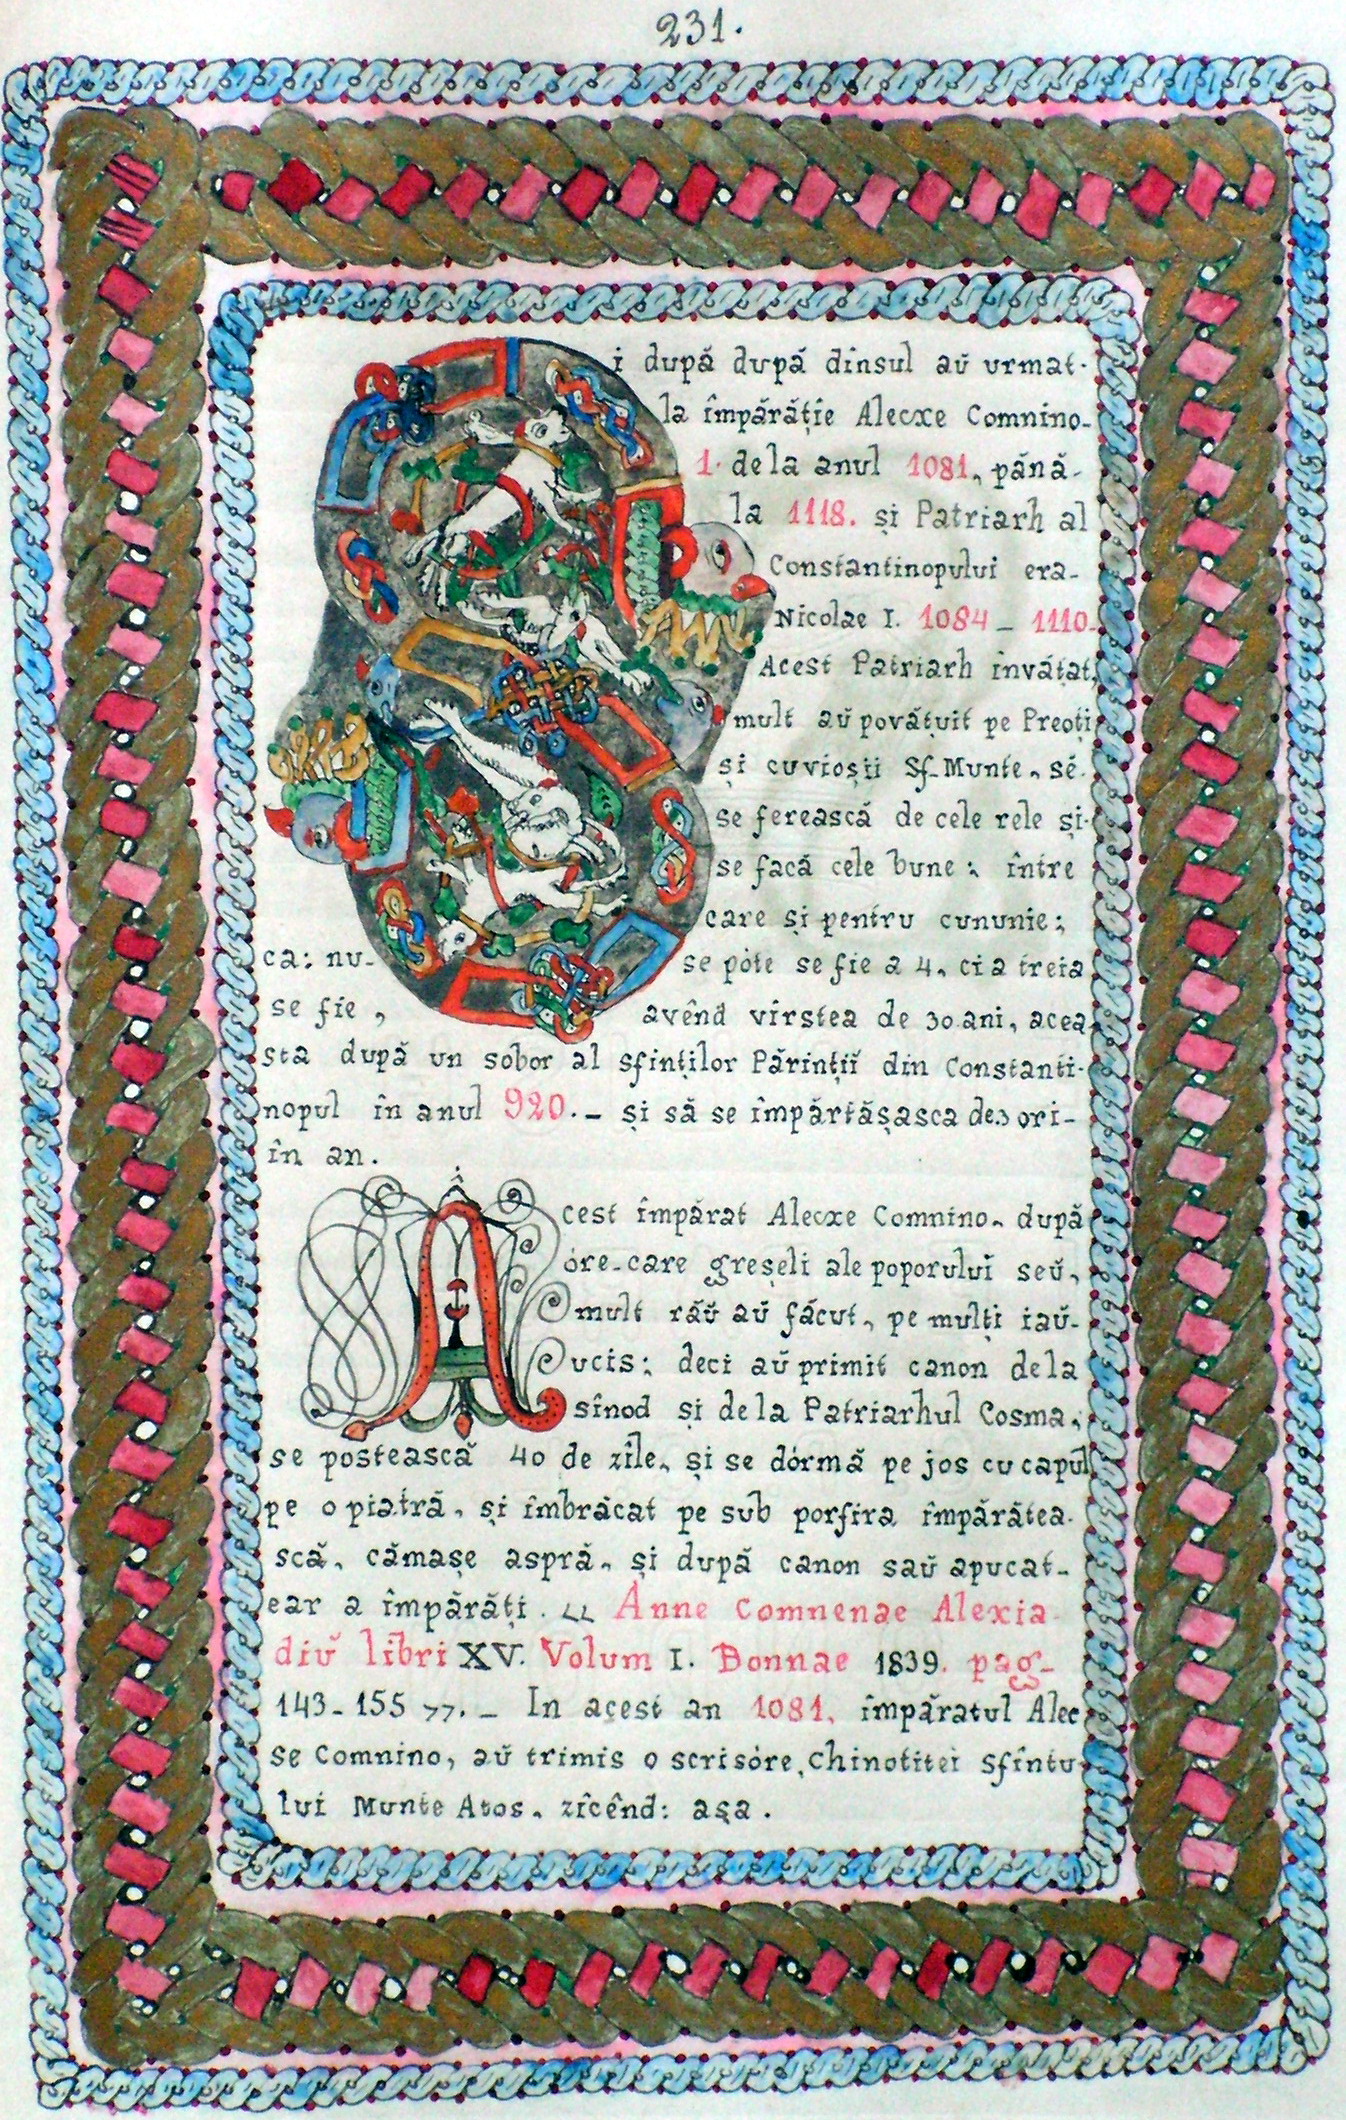 231.
Și după după dînsul aŭ urmat-
la împărăție Alecxe Comnino-
1. dela anul 1081, până-
la 1118. și Patriarh al
Constantinopului era-
Nicolae I. 1084 - 1110.
Acest Patriarh învățat,
mult aŭ povățuit pe Preoți
și cuvioșii Sf. Munte, sĕ-
se ferească de cele rele și-
se facă cele bune: între
care și pentru cununie;
ca: nu- se póte se fie a 4, ci a treia
se fie, avênd vîrstea de 30 ani, acea-
sta după un sobor al sfinților Părinții din Constanti-
nopul în anul 920. - și să se împărtășasca de 3 ori-
în an.
Acest împărat Alecxe Comnino, după
óre-care greșeli ale poporului seŭ,
mult răŭ aŭ făcut, pe mulți iaŭ-
ucis: deci aŭ primit canon dela
sînod și dela Patriarhul Cosma,
se postească 40 de zile, și se dórmă pe jos cu capul
pe o piatră, și îmbrăcat pe sub porfira împărătea-
scă, cămașe aspră, și după canon saŭ apucat-
ear a împărăți. << Anne Comnenae Alexia
diŭ libri XV. Volum I. Bonnae 1839. pag-
143-155 >>. - In acest an 1081, împăratul Alec
se Comnino, aŭ trimis o scrisóre, Chinotitei sfîntu-
lui Munte Atos, zîcênd: așa.